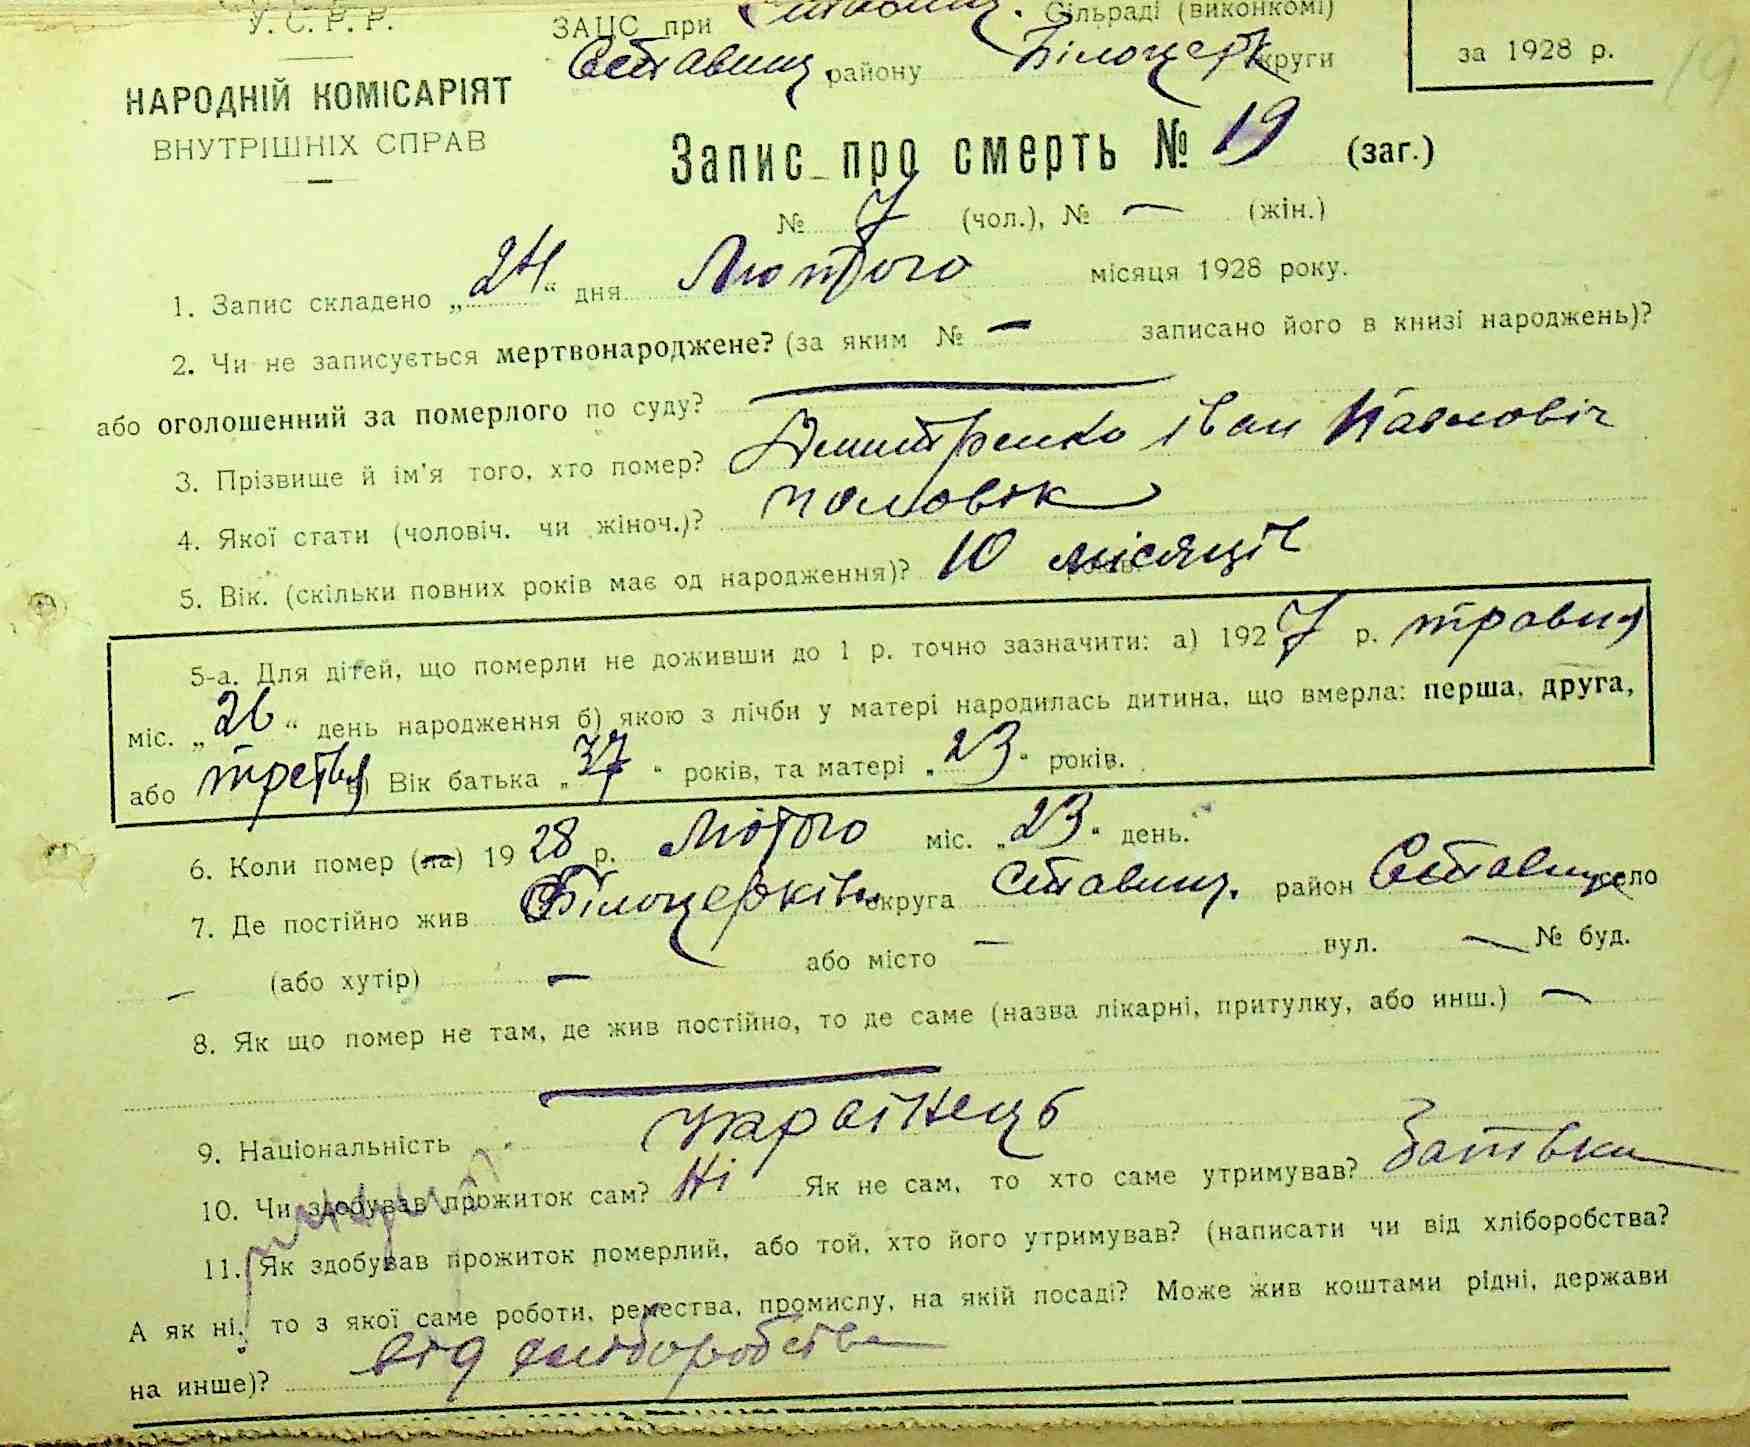 У. С. Р. Р. ЗАЦС при Ставищ. Сільраді (виконкомі)
Ставищ. району Білоцерк округи за 1928 р. 19
НАРОДНІЙ КОМІСАРІЯТ
ВНУТРІШНІХ СПРАВ
Запис про смерть № 19 (заг.)
№ 7 (чол.), № — (жін.)
1. Запис складено „24“ дня Лютого місяця 1928 року.
2. Чи не записується мертвонароджене? (за яким № — записано його в книзі народжень)?
або оголошенний за померлого по суду? —
3. Прізвище й ім'я того, хто помер? Дмитренко Іван Павловіч
4. Якої стати (чоловіч. чи жіноч.)? чоловік
5. Вік. (скільки повних років має од народження)? 10 місяців
5-а. Для дітей, що померли не доживши до 1 р. точно зазначити: а) 1927 р. травня
міс. „26“ день народження б) якою з лічби у матері народилась дитина, що вмерла: перша, друга,
або третья в) Вік батька „37“ років, та матері „23“ років.
6. Коли помер (ла) 1928 р. Лютого міс. „23“ день.
7. Де постійно жив Білоцерківс округа Ставищ. район Ставище село
— (або хутір) — або місто — вул. — № буд.
8. Як що помер не там, де жив постійно, то де саме (назва лікарні, притулку, або инш.) —
9. Національність Українець
10. Чи здобував прожиток сам? Ні Як не сам, то хто саме утримував? Батівки
11. Як здобував прожиток померлий, або той, хто його утримував? (написати чи від хліборобства?
А як ні, то з якої саме роботи, ремества, промислу, на якій посаді? Може жив коштами рідні, держави
на инше)? від хліборобства